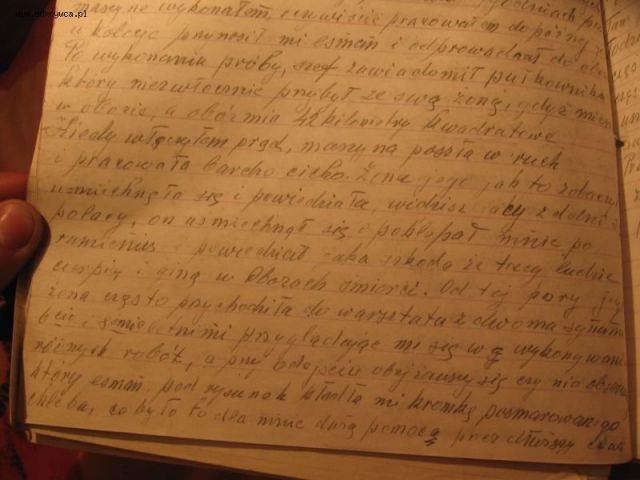 www.odkrywca.pl
maszynę wykonałem, oczywiście pracowałem do późnej
a kolację przynosił mi esman i odprowadzał do
Po wykonaniu próby, szef zawiadomił pułkownika
który niezwłocznie przybył ze swą żoną, gdyż
w obozie, a obózmia 42 kilometry kwadratowe
kiedy włączyłem prąd, maszyna poszła w ruch
i pracowała bardzo cicho. Żena jego jak to
uśmiechnęła się i powiedziała, widzisz jacy zdolni są
polacy, on uśmiechnął się i poklepał mnie po
ramieniu i powiedział jaka szkoda że tacy ludzie
cierpią i giną w Obozach śmierci. Od tej pory
żona często przychodziła do warsztatu z dwoma synami
przyglądając mi się w wykonywaniu
różnych robót, a przy odejściu obejżawszy się czy nie
który esman, pod rysunek kładła mi kromkę posmarowanego
chleba, co było to dla mnie dużą pomocą przez dłuższy czas